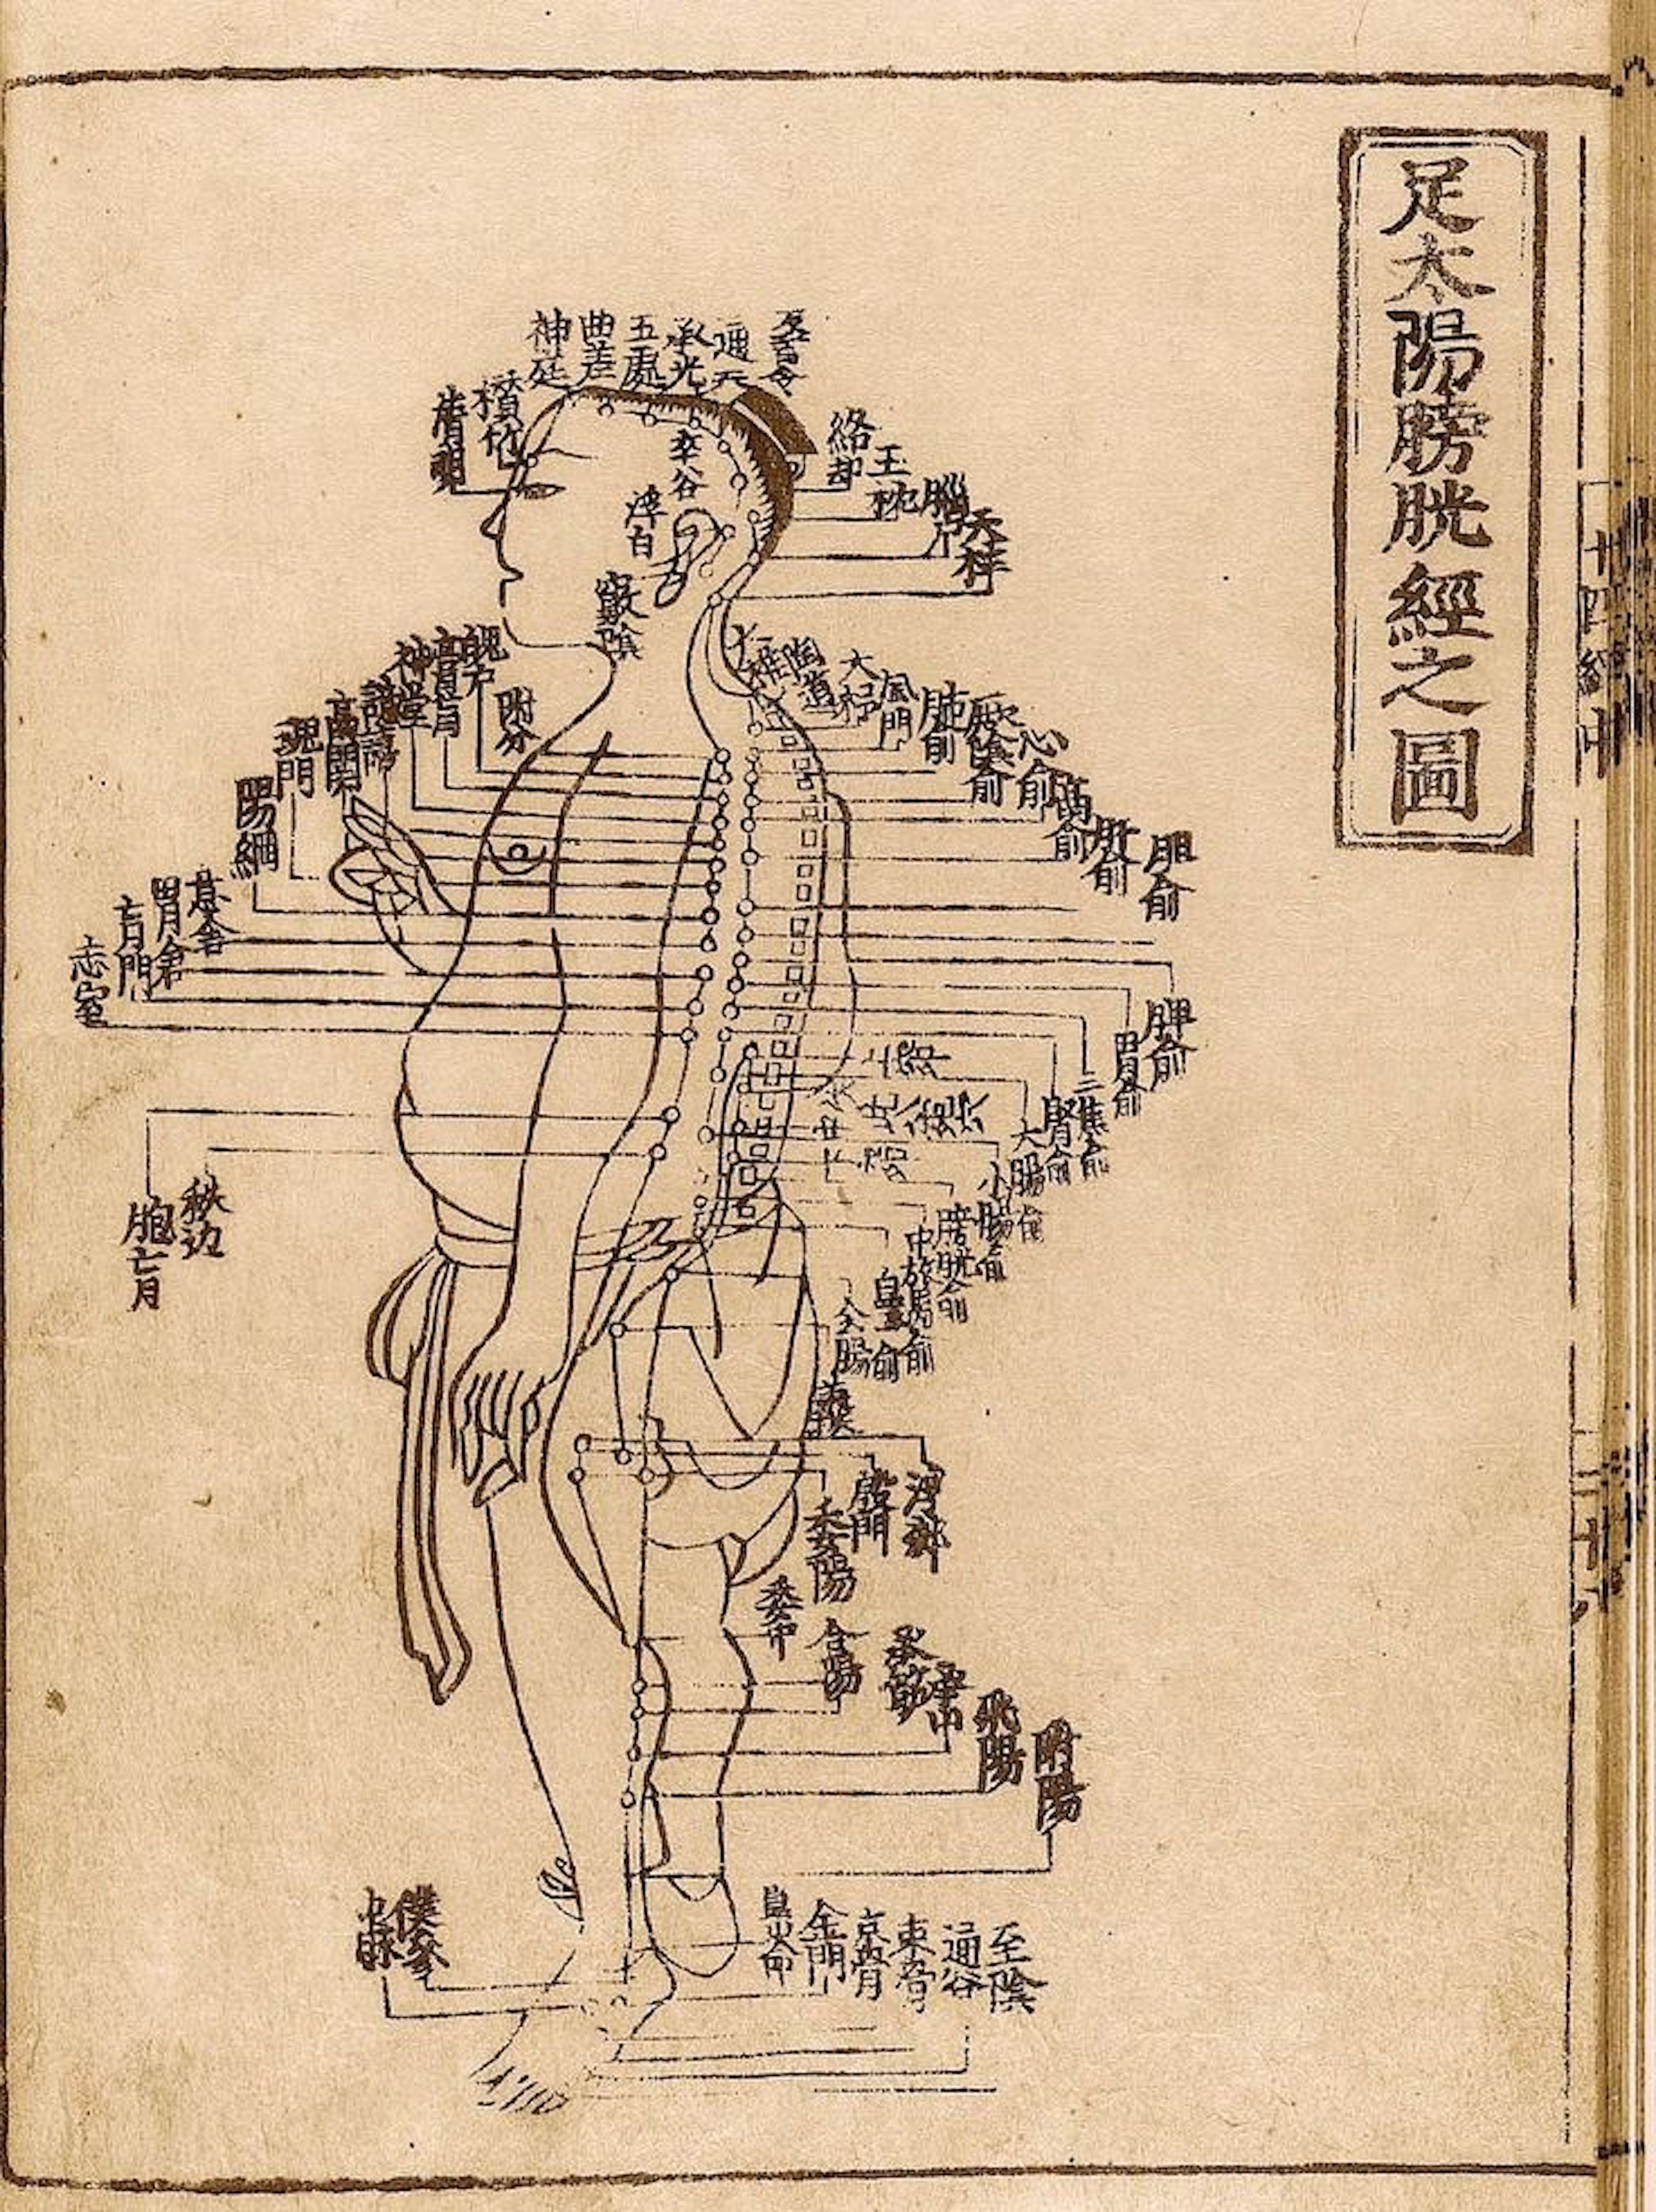 足太陽膀胱經之圖
百會
通天
承光
五處
曲差
神庭
攅竹
睛明
絡却
玉枕
腦戶
天柱
率谷
浮白
竅陰
大椎
陶道
大杼
風門
肺俞
厥陰俞
心俞
膈俞
肝俞
胆俞
脾俞
胃俞
三焦俞
腎俞
大腸俞
小腸俞
膀胱俞
附分
魄戶
膏肓
神堂
譩譆
膈關
魂門
陽綱
意舍
胃倉
肓門
志室
胞肓
秩边
會陽
浮郄
殷門
委陽
委中
合陽
承筋
承山
飛陽
附陽
僕參
申脉
崑崙
金門
京骨
束骨
通谷
至陰
十四經
二十八